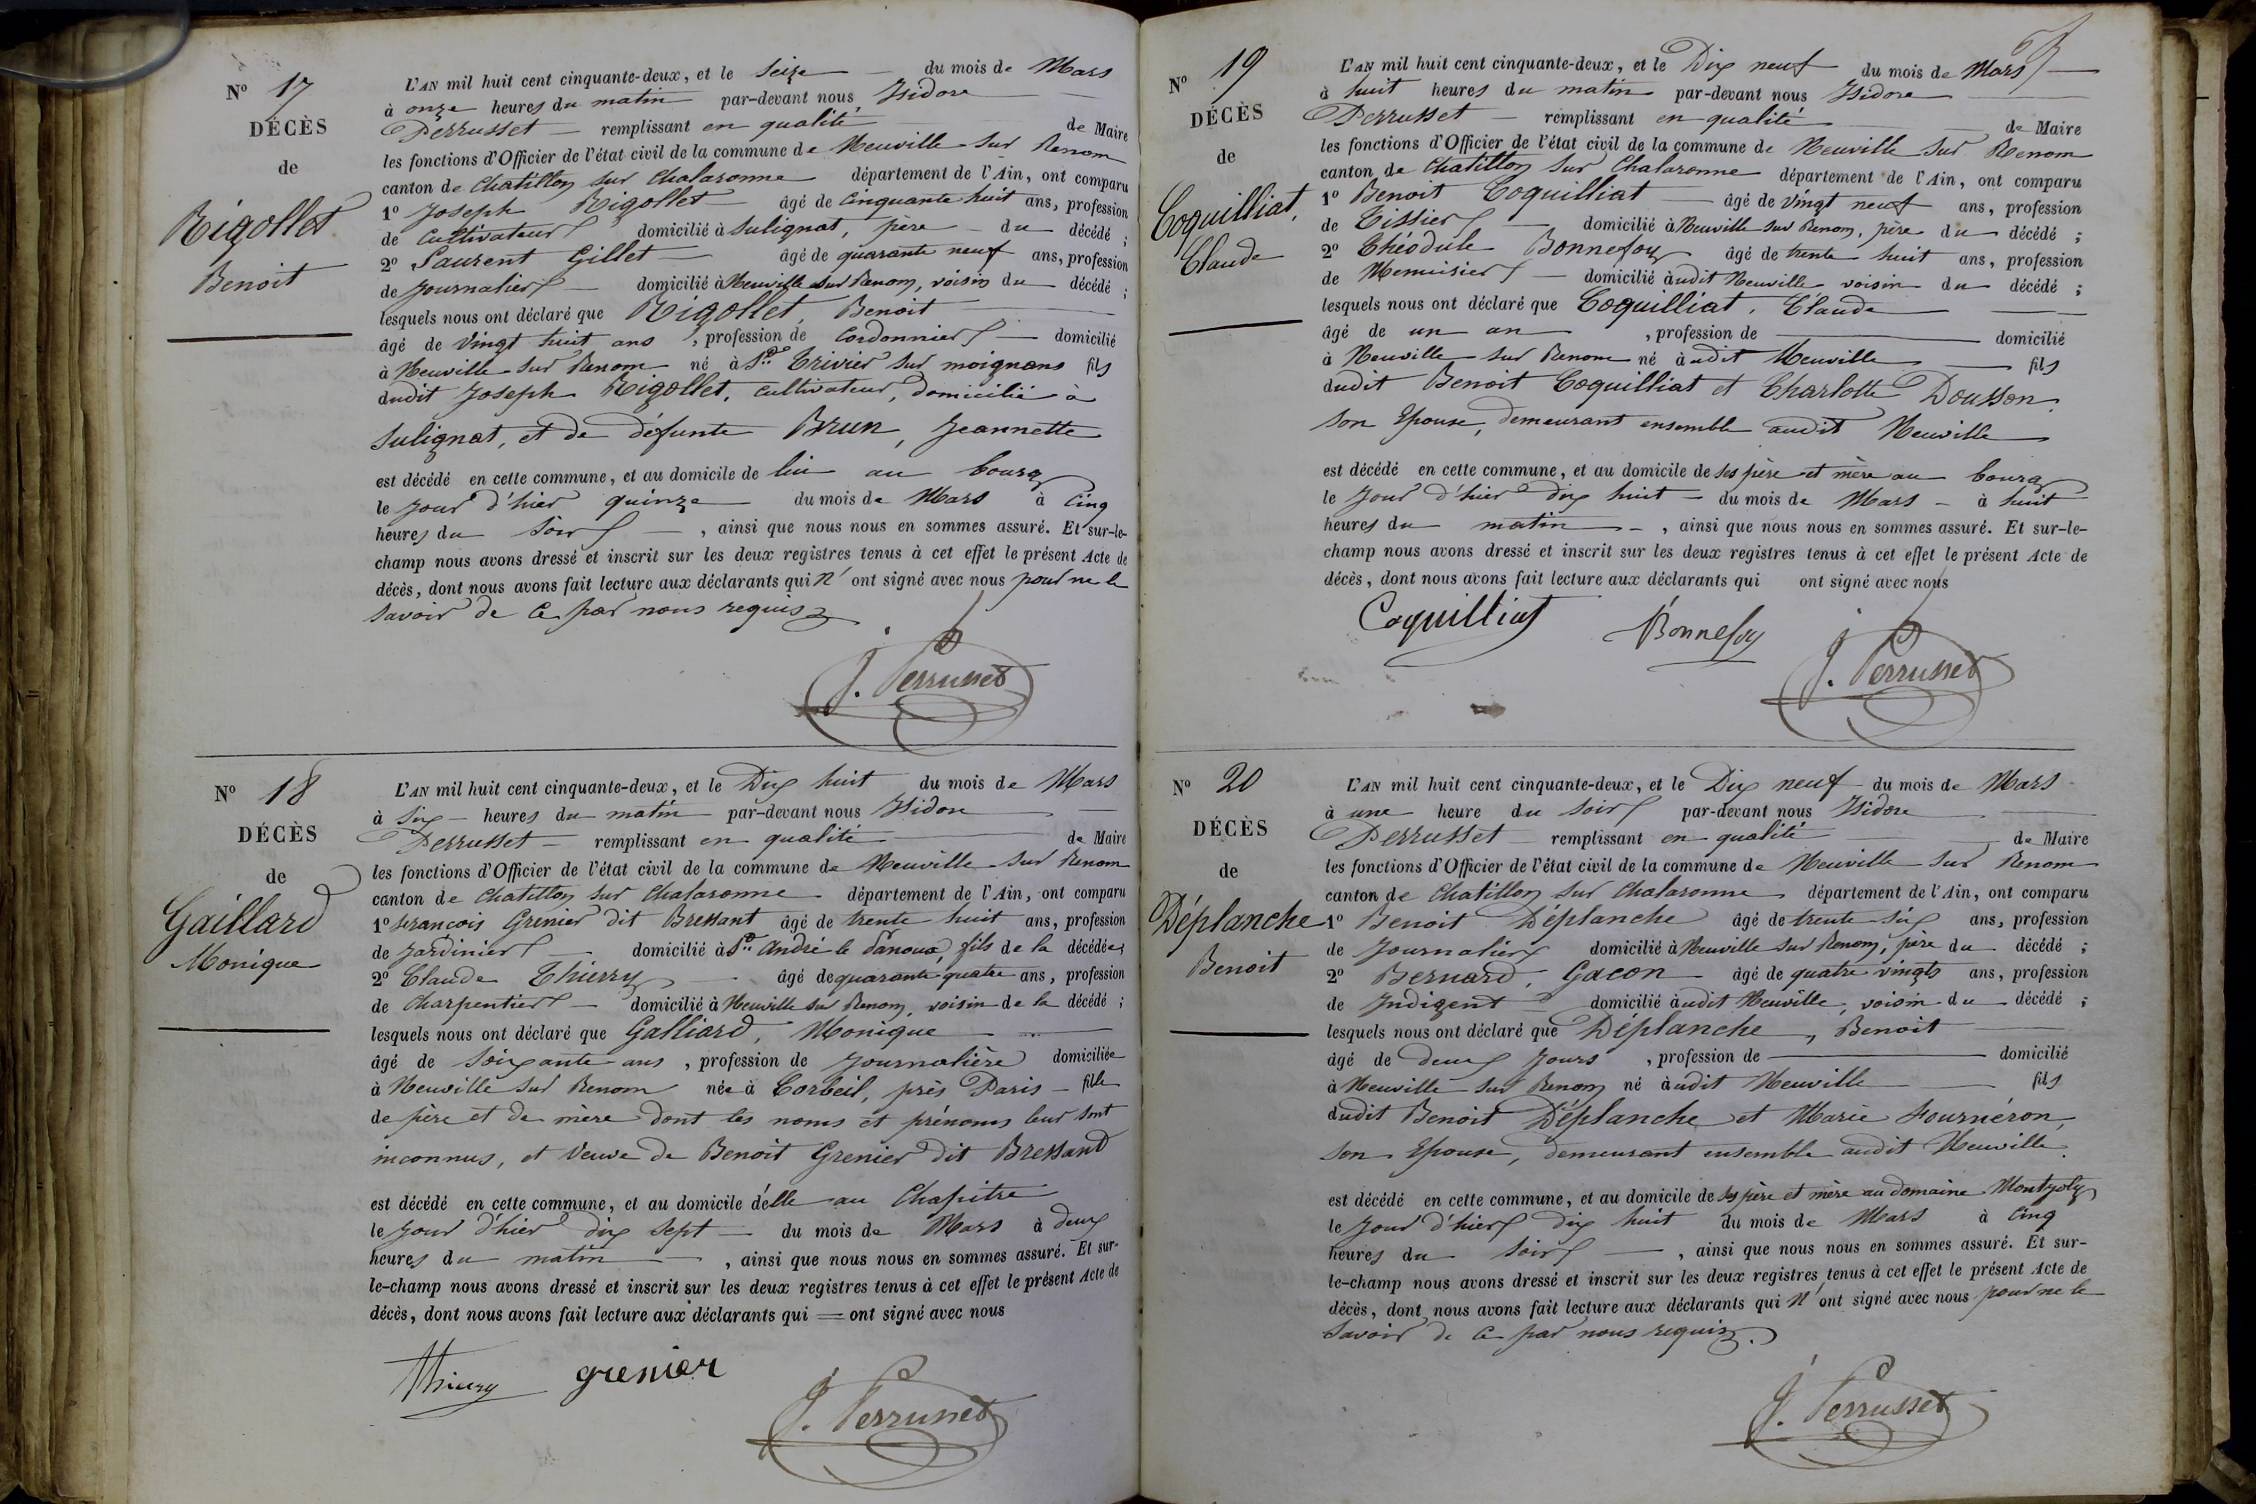 N° 17
DÉCÈS
de
Rigollet
Benoit
L'AN mil huit cent cinquante-deux, et le seize du mois de Mars
à onze heures du matin par-devant nous Isidore
Perrusset remplissant en qualité de Maire
les fonctions d'Officier de l'état civil de la commune de Neuville sur Renom
canton de Chatillon sur Chalaronne département de l'Ain, ont comparu
1° Joseph Rigollet âgé de Cinquante huit ans, profession
de Cultivateur domicilié à Sulignat, père du décédé ;
2° Laurent Gillet âgé de quarante neuf ans, profession
de Journalier domicilié à Neuville sur Renom, voisin du décédé ;
lesquels nous ont déclaré que Rigollet, Benoit
âgé de Vingt huit ans, profession de Cordonnier domicilié
à Neuville sur Renom né à St. Trivier sur moignans fils
dudit Joseph Rigollet, cultivateur, domicilié à
Sulignat, et de défunte Brun, Jeannette
est décédé en cette commune, et au domicile de lui au bourg
le jour d'hier quinze du mois de Mars à Cinq
heures du Soir, ainsi que nous nous en sommes assuré. Et sur-le-
champ nous avons dressé et inscrit sur les deux registres tenus à cet effet le présent Acte de
décès, dont nous avons fait lecture aux déclarants qui n'ont signé avec nous pour ne le
savoir de ce par nous requis
J. Perrusset
N° 18
DÉCÈS
de
Gaillard
Monique
L'AN mil huit cent cinquante-deux, et le Dix huit du mois de Mars
à Six heures du matin par-devant nous Isidore
Perrusset remplissant en qualité de Maire
les fonctions d'Officier de l'état civil de la commune de Neuville sur Renom
canton de Chatillon sur Chalaronne département de l'Ain, ont comparu
1° François Grenier dit Bressant âgé de trente huit ans, profession
de Jardinier domicilié à St. André le Panoux, fils de la décédée ;
2° Claude Thierry âgé de quarante quatre ans, profession
de Charpentier domicilié à Neuville sur Renom, voisin de la décédé ;
lesquels nous ont déclaré que Galliard, Monique
âgé de Soixante ans, profession de Journalière domiciliée
à Neuville sur Renom née à Corbeil, près Paris fille
de père et de mère dont les noms et prénoms leur sont
inconnus, et Veuve de Benoit Grenier dit Bressand
est décédé en cette commune, et au domicile d'elle au Chapitre
le jour d'hier dix sept du mois de Mars à deux
heures du matin, ainsi que nous nous en sommes assuré. Et sur-
le-champ nous avons dressé et inscrit sur les deux registres tenus à cet effet le présent Acte de
décès, dont nous avons fait lecture aux déclarants qui = ont signé avec nous
Thierry grenier
J. Perrusset
N° 19
DÉCÈS
de
Coquilliat,
Claude
L'AN mil huit cent cinquante-deux, et le Dix neuf du mois de Mars
à huit heures du matin par-devant nous Isidore
Perrusset remplissant en qualité de Maire
les fonctions d'Officier de l'état civil de la commune de Neuville sur Renom
canton de Chatillon sur Chalaronne département de l'Ain, ont comparu
1° Benoit Coquilliat âgé de vingt neuf ans, profession
de Tissier domicilié à Neuville sur Renom, père du décédé ;
2° Théodule Bonnefoy âgé de trente huit ans, profession
de Menuisier domicilié à udit Neuville voisin du décédé ;
lesquels nous ont déclaré que Coquilliat, Claude
âgé de un an, profession de domicilié
à Neuville sur Renom né à udit Neuville fils
dudit Benoit Coquilliat et Charlotte Dousson,
son Epouse, demeurant ensemble audit Neuville
est décédé en cette commune, et au domicile de ses père et mère au bourg
le jour d'hier dix huit du mois de Mars à huit
heures du matin, ainsi que nous nous en sommes assuré. Et sur-le-
champ nous avons dressé et inscrit sur les deux registres tenus à cet effet le présent Acte de
décès, dont nous avons fait lecture aux déclarants qui ont signé avec nous
Coquilliat Bonnefoy
J. Perrusset
N° 20
DÉCÈS
de
Déplanche
Benoit
L'AN mil huit cent cinquante-deux, et le Dix neuf du mois de Mars
à une heure du soir par-devant nous Isidore
Perrusset remplissant en qualité de Maire
les fonctions d'Officier de l'état civil de la commune de Neuville sur Renom
canton de Chatillon sur Chalaronne département de l'Ain, ont comparu
1° Benoit Déplanche âgé de trente six ans, profession
de Journalier domicilié à Neuville sur Renom, père du décédé ;
2° Bernard, Gacon âgé de quatre vingts ans, profession
de Indigent domicilié à udit Neuville, voisin du décédé ;
lesquels nous ont déclaré que Déplanche, Benoit
âgé de deux Jours, profession de domicilié
à Neuville sur Renom né à udit Neuville fils
dudit Benoit Déplanche et Marie Fournéron,
son Epouse, demeurant ensemble audit Neuville.
est décédé en cette commune, et au domicile de ses père et mère au domaine Montjoly
le jour d'hier dix huit du mois de Mars à Cinq
heures du Soir, ainsi que nous nous en sommes assuré. Et sur-
le-champ nous avons dressé et inscrit sur les deux registres tenus à cet effet le présent Acte de
décès, dont nous avons fait lecture aux déclarants qui n'ont signé avec nous pour ne le
Savoir de ce par nous requis.
J. Perrusset